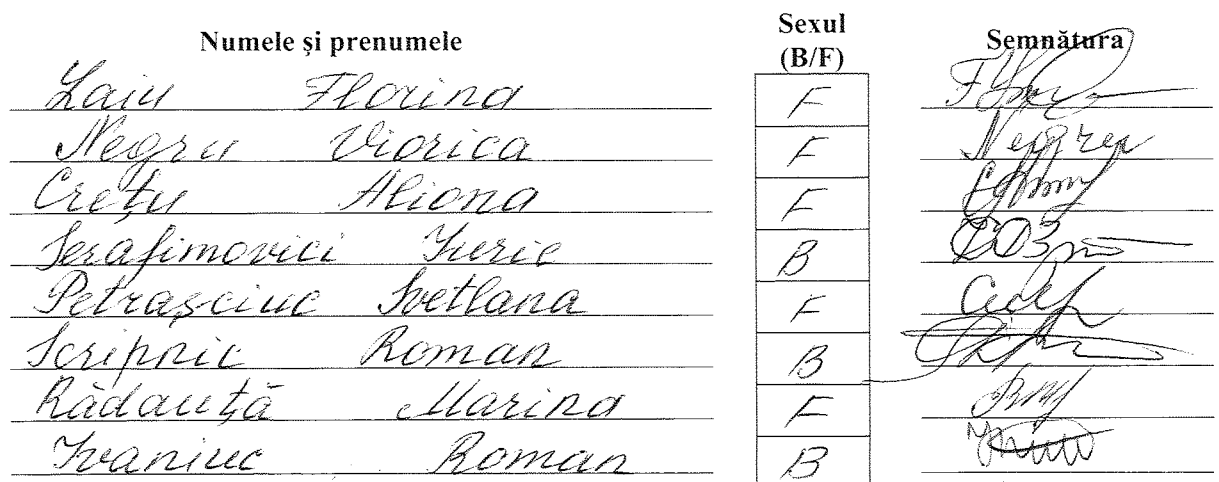 Numele și prenumele Sexul (B/F) Semnătura
Laiu Florina F
Negru Viorica F Negru
Crețu Aliona F
Serafimovici Iurie B
Petrașciuc Svetlana F
Scripnic Roman B
Rădăuță Marina F
Ivaniuc Roman B